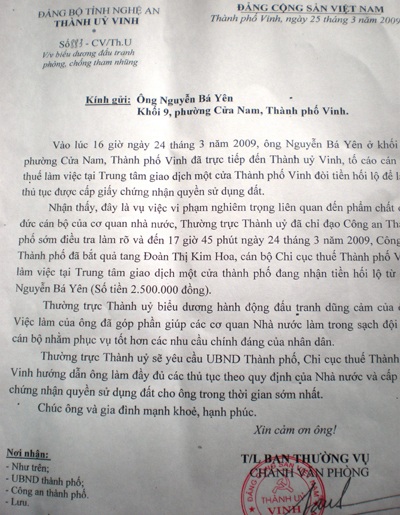 ĐẢNG BỘ TỈNH NGHỆ AN
THÀNH UỶ VINH
*
Số - CV/Th.U
V/v biểu dương đấu tranh
phòng, chống tham nhũng
ĐẢNG CỘNG SẢN VIỆT NAM
Thành phố Vinh, ngày 25 tháng 3 năm 2009
Kính gửi: Ông Nguyễn Bá Yên
Khối 9, phường Cửa Nam, Thành phố Vinh.
Vào lúc 16 giờ ngày 24 tháng 3 năm 2009, ông Nguyễn Bá Yên ở khối
phường Cửa Nam, Thành phố Vinh đã trực tiếp đến Thành uỷ Vinh, tố cáo cán
thuế làm việc tại Trung tâm giao dịch một cửa Thành phố Vinh đòi tiền hối lộ để l
thủ tục được cấp giấy chứng nhận quyền sử dụng đất.
Nhận thấy, đây là vụ việc vi phạm nghiêm trọng liên quan đến phẩm chất
đức cán bộ của cơ quan nhà nước, Thường trực Thành uỷ đã chỉ đạo Công an Thà
phố sớm điều tra làm rõ và đến 17 giờ 45 phút ngày 24 tháng 3 năm 2009, Công
Thành phố đã bắt quả tang Đoàn Thị Kim Hoa, cán bộ Chi cục thuế Thành phố V
làm việc tại Trung tâm giao dịch một cửa thành phố đang nhận tiền hối lộ từ
Nguyễn Bá Yên (Số tiền 2.500.000 đồng).
Thường trực Thành uỷ biểu dương hành động đấu tranh dũng cảm của
Việc làm của ông đã góp phần giúp các cơ quan Nhà nước làm trong sạch đội
cán bộ nhằm phục vụ tốt hơn các nhu cầu chính đáng của nhân dân.
Thường trực Thành uỷ sẽ yêu cầu UBND Thành phố, Chi cục thuế Thành
Vinh hướng dẫn ông làm đầy đủ các thủ tục theo quy định của Nhà nước và cấp
chứng nhận quyền sử dụng đất cho ông trong thời gian sớm nhất.
Chúc ông và gia đình mạnh khoẻ, hạnh phúc.
Xin cảm ơn ông!
Nơi nhận:
- Như trên;
- UBND thành phố;
- Công an thành phố.
- Lưu.
T/L BAN THƯỜNG VỤ
CHÁNH VĂN PHÒNG
THÀNH UỶ
VINH